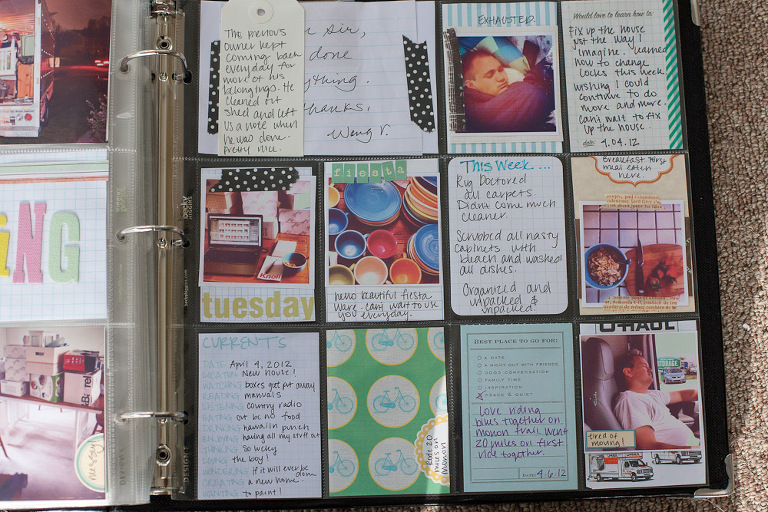 The previous
owner kept
coming back
everyday for
more of his
belongings. He
cleaned out
shed and left
us a note when
he was done.
pretty nice.
sir,
done
thing.
thanks.
-Weng V.
EXHAUSTED
Would love to learn how to:
Fix up the house
just the way I
imagine. Learned
how to change
locks this week
wishing I could
continue to do
more and more.
can't wait to fix
up the house
date 4.04.12
ING
tuesday
fiesta
hello beautiful fiesta
ware. can't wait to use
you everyday.
This Week ...
Rug Doctored
all carpets.
Didnt come much
cleaner.
Scrubbed all nasty
cabinets with
bleach and washed
all dishes.
Organized and
unpacked &
unpacked
breakfast
must
catch
here.
CURRENTS
DATE April 4, 2012
New house!
boxes get put away
READING manuals
country radio
EATING out bc no food
hawaiin punch
having all my stuff out
so lucky
the boy!
if it will ever be
done
a new home
to paint!
ride 20
miles on
monon
BEST PLACE TO GO FOR:
A DATE
A NIGHT OUT WITH FRIENDS
GOOD CONVERSATION
FAMILY TIME
INSPIRATION
PEACE & QUIET
love riding
bikes together on
monon trail. went
20 miles on first
ride together.
DATE: 4.6.12
U-HAUL
STORAGE
tired of
moving!